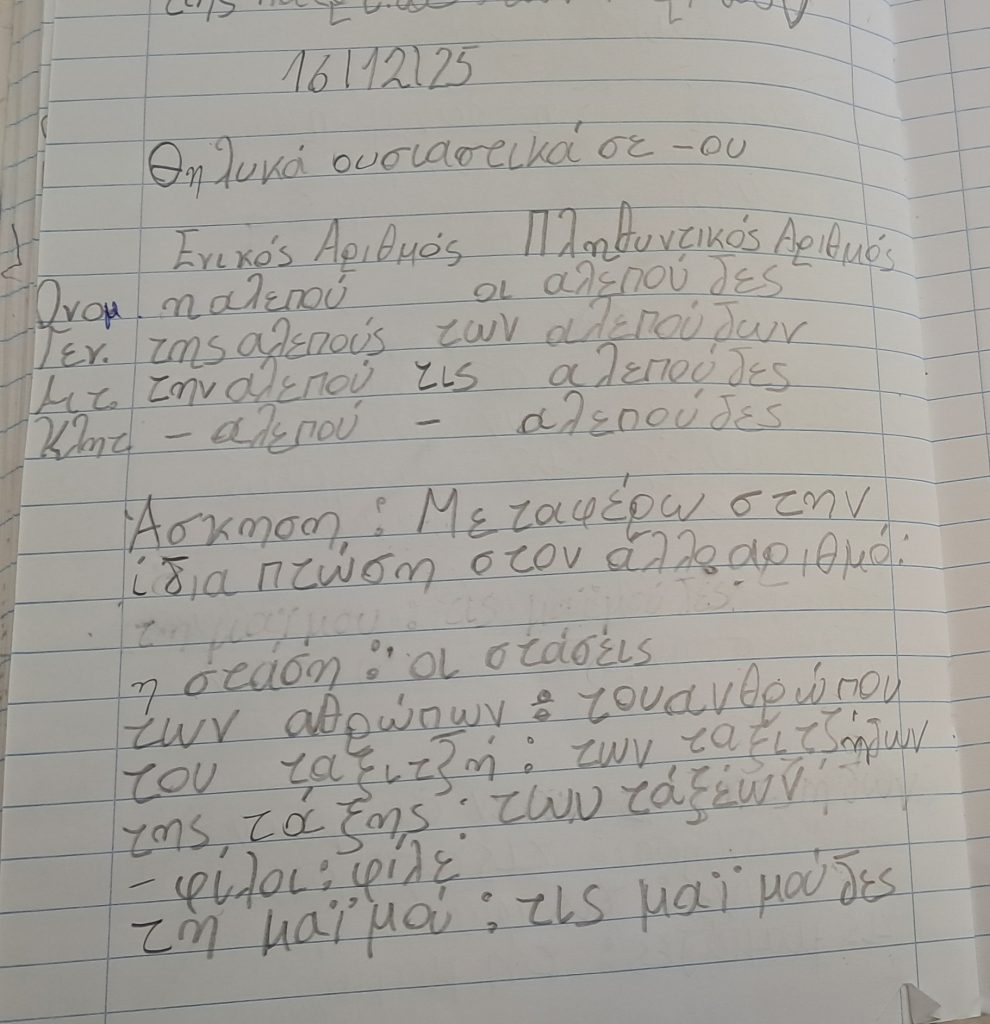 16/12/25
Θηλυκά ουσιαστικά σε -ου
Ενικός Αριθμός Πληθυντικός Αριθμός
Ονομ. η αλεπού οι αλεπούδες
Γεν. της αλεπούς των αλεπούδων
Αιτ. την αλεπού τις αλεπούδες
Κλητ - αλεπού - αλεπούδες
Άσκηση: Μεταφέρω στην
ίδια πτώση στον άλλο αριθμό:
η στάση: οι στάσεις
των αθρώπων: του ανθρώπου
του ταξιτζή: των ταξιτζήδων
της τάξης: των τάξέων
- φίλοι: φίλε
τη μαϊμού: τις μαϊμούδες